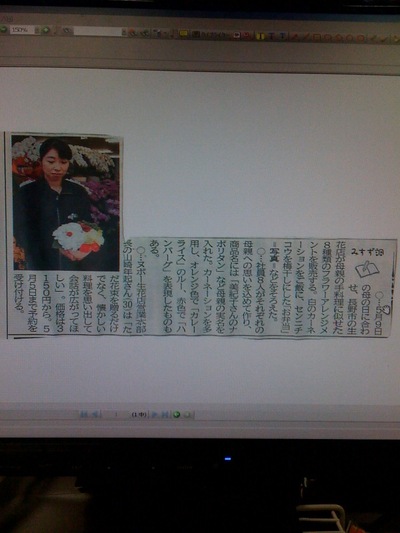 150%
みすず09
◇…5月9日
の母の日に合わ
せ、長野市の生
花店が母親の手料理に似せた
8種類のフラワーアレンジメ
ントを販売する。白のカーネ
ーションをご飯に、センニチ
コウを梅干しにした「お弁当」
＝写真＝などをそろえた。
◇…社員8人がそれぞれの
母親への思いを込めて作り、
商品名には「美紀子さんのナ
ポリタン」など母親の実名を
入れた。カーネーションを多
用し、オレンジ色で「カレー
ライス」のルー、赤色で「ハ
ンバーグ」を表現したものも
ある。
◇…スポー生花店営業本部
長の山崎年起さん(30)は「た
だ花束を贈るだけ
でなく、懐かしい
料理を思い出して
会話が広がってほ
しい」。価格は3
150円から。5
月5日まで予約を
受け付ける。